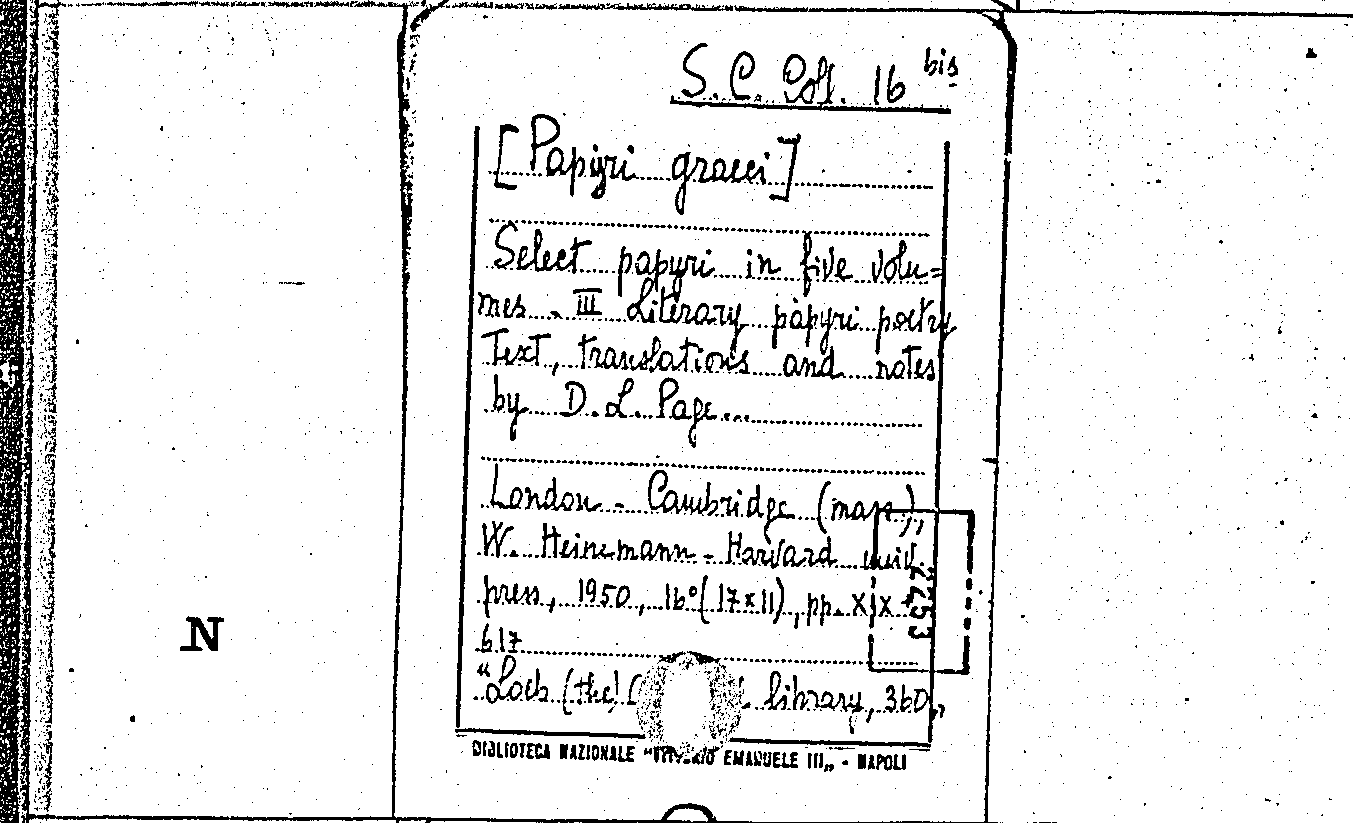 S. C. Coll. 16 bis
[Papyri graeci]
Select papyri in five volu=
mes. III Literary papyri poetry
Text, translations and notes
by D. L. Page...
London - Cambridge (mass),
W. Heinemann - Harvard univ.
press, 1950, 16° (17x11), pp. XIX +
617
"Loeb (the) library, 360„
BIBLIOTECA NAZIONALE "VITTORIO EMANUELE III„ - NAPOLI
2253
N